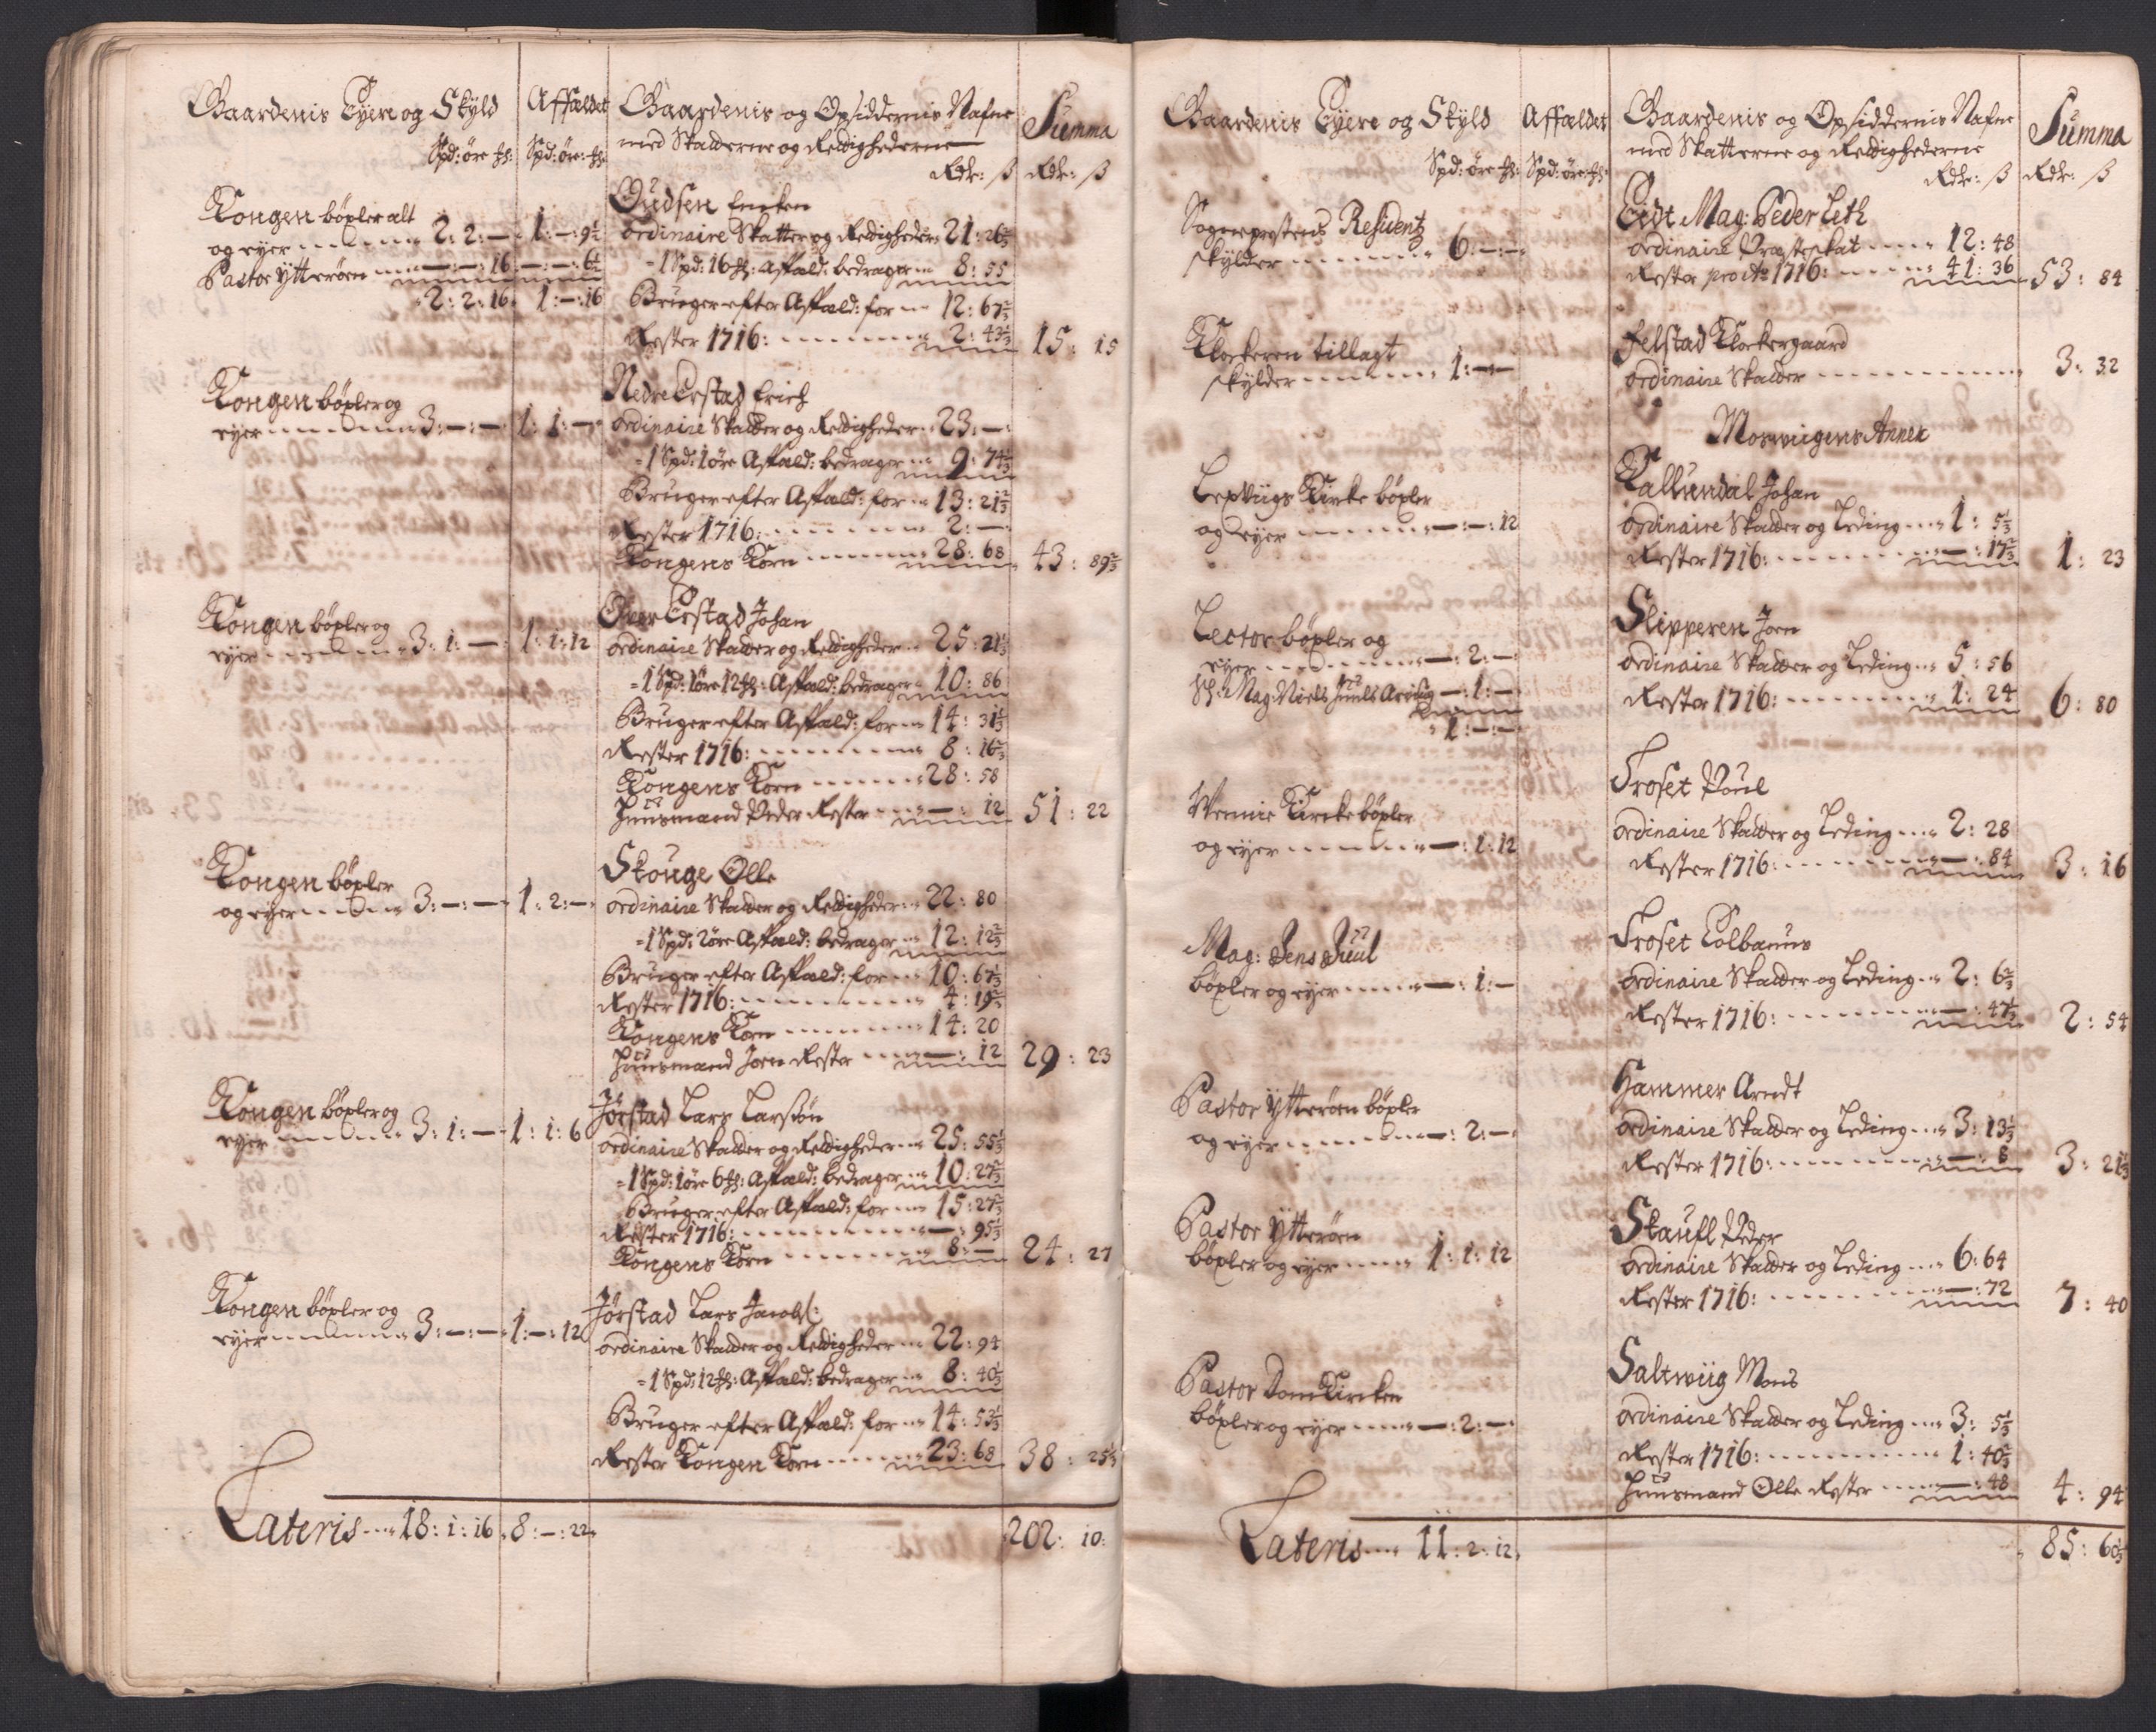 Gaardenis Eyere og Skyld
Spd: øre
Affældet
Spd: øre:
Gaardenis og Opsiddernis Nafne
med Skatterne og Rettighederne
Rdr: ß
Summa
Rdr: ß
Kongen böxler alt
og eyer 2: 2: — 1: —: 9½
Pastor Ytterøen —: —: 16 —: —: 6½
2: 2: 16 1: —: 16
Gudsen Encken
ordinaire Skatter og Rettigheder 21: 26⅔
1 Spd: 16 Affæld: bedrager 8: 55
Bruger efter Affæld: for 12: 67⅔
Rester 1716: 2: 43⅓ 15: 15
Kongen böxler og
eyer 3: —: — 1: 1: —
Nedre Erstad Erich
ordinaire Skatter og Rettigheder 23: —
1 Spd: 1 øre Affæld: bedrager 9: 74⅓
Bruger efter Affæld: for 13: 21⅔
Rester 1716: 2: —
Kongens Korn 28: 68 43: 89⅔
Kongen böxler og
eyer 3: 1: — 1: 1: 12
Over Erstad Johan
ordinaire Skatter og Rettigheder 25: 21⅓
1 Spd: 1 øre 12 Affæld: bedrager 10: 86
Bruger efter Affæld: for 14: 31⅓
Rester 1716: 8: 16⅔
Kongens Korn 28: 58
Huusmand Peder Rester —: 12 51: 22
Kongen böxler
og eyer 3: —: — 1: 2: —
Skouge Olle
ordinaire Skatter og Rettigheder 22: 80
1 Spd: 2 øre Affæld: bedrager 12: 12⅔
Bruger efter Affæld: for 10: 67⅓
Rester 1716: 4: 19⅔
Kongens Korn 14: 20
Huusmand Joen Rester —: 12 29: 23
Kongen böxler og
eyer 3: 1: — 1: 1: 6
Jørstad Lars Larsøn
ordinaire Skatter og Rettigheder 25: 55⅓
1 Spd: 1 øre 6 Affæld: bedrager 10: 27⅔
Bruger efter Affæld: for 15: 27⅔
Rester 1716: —: 95⅓
Kongens Korn 8: — 24: 27
Kongen böxler og
eyer 3: —: — 1: —: 12
Jørstad Lars Jacobs:
ordinaire Skatter og Rettigheder 22: 94
1 Spd: 12 Affæld: bedrager 8: 40⅔
Bruger efter Affæld: for 14: 53⅓
Rester Kongen Korn 23: 68 38: 25⅓
Lateris 18: 1: 16 8: —: 22 202: 10:
Gaardenis Eyere og Skyld
Spd: øre
Affældet
Spd: øre:
Gaardenis og Opsiddernis Nafne
med Skatterne og Rettighederne
Rdr: ß
Summa
Rdr: ß
Sogneprestens Residentz
skylder 6: —: —
Eidt Mag: Peder Leth
ordinaire Præsteskat 12: 48
Rester pro Ao 1716: 41: 36 53: 84
Klockeren tillagt
skylder 1: —: —
Felstad Klockergaard
ordinaire Skatter 3: 32
Moswiigens Annex
Lexviigs Kircke böxler
og eyer —: —: 12
Kallundal Johan
ordinaire Skatter og Leding 1: 5⅓
Rester 1716: —: 17⅔ 1: 23
Lector böxler og
eyer —: 2: —
Sl: Mag: Niels Juuls Arving —: 1: —
1: —: —
Slipperen Joen
ordinaire Skatter og Leding 5: 56
Rester 1716: 1: 24 6: 80
Wennie Kircke böxler
og eyer —: 1: 12
Froset Poul
ordinaire Skatter og Leding 2: 28
Rester 1716: —: 84 3: 16
Mag: Jens Juul
böxler og eyer —: 1: —
Froset Colbanus
ordinaire Skatter og Leding 2: 6⅔
Rester 1716: —: 47⅓ 2: 54
Pastor Ytterøen böxler
og eyer —: 2: —
Hammer Arndt
ordinaire Skatter og Leding 3: 13⅓
Rester 1716: —: 8 3: 21⅓
Pastor Ytterøen
böxler og eyer 1: 1: 12
Staufl Peder
ordinaire Skatter og Leding 6: 64
Rester 1716: —: 72 7: 40
Pastor DomKircken
böxler og eyer —: 2: —
Saltwiig Mons
ordinaire Skatter og Leding 3: 5⅓
Rester 1716: 1: 40⅔
Huusmand Olle Rester —: 48 4: 94
Lateris 11: 2: 12 85: 60⅓